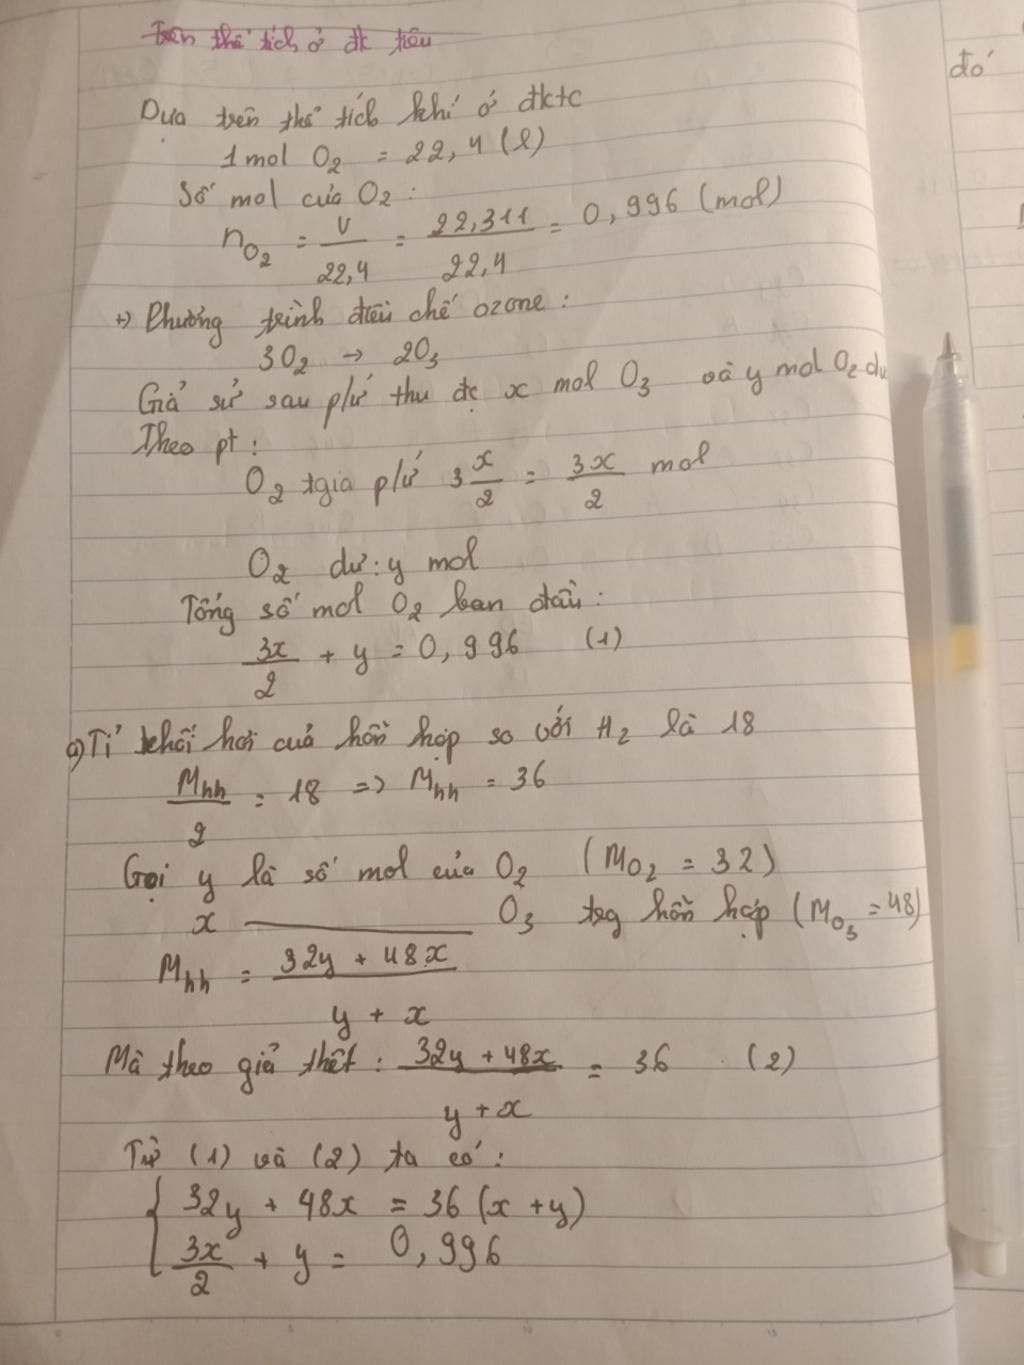 Trên thể tích ở đk tiêu
đó
Dựa trên thể tích khí ở đktc
1 mol O₂ = 22,4 (l)
Số mol của O₂ :
n_O₂ = V/22,4 = 22,311/22,4 = 0,996 (mol)
+) Phương trình điều chế ozone :
3O₂ → 2O₃
Giả sử sau p/ứ thu đc x mol O₃ và y mol O₂ dư
Theo pt :
O₂ tgia p/ứ 3 x/2 = 3x/2 mol
O₂ dư : y mol
Tổng số mol O₂ ban đầu :
3x/2 + y = 0,996 (1)
a) Tỉ khối hơi của hỗn hợp so với H₂ là 18
M_hh/2 = 18 => M_hh = 36
Gọi y là số mol của O₂ (M_O₂ = 32)
x ——— O₃ trg hỗn hợp (M_O₃ = 48)
M_hh = (32y + 48x)/(y + x)
Mà theo giả thết : (32y + 48x)/(y + x) = 36 (2)
Từ (1) và (2) ta có :
{ 32y + 48x = 36 (x + y)
3x/2 + y = 0,996